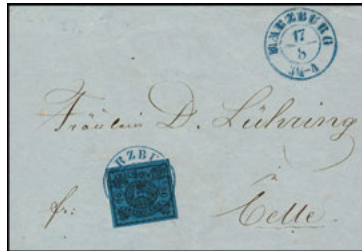 HARZBURG
17
8
3¼-4
Fräulein D. Lühring
RZBU
fr:
Celle.